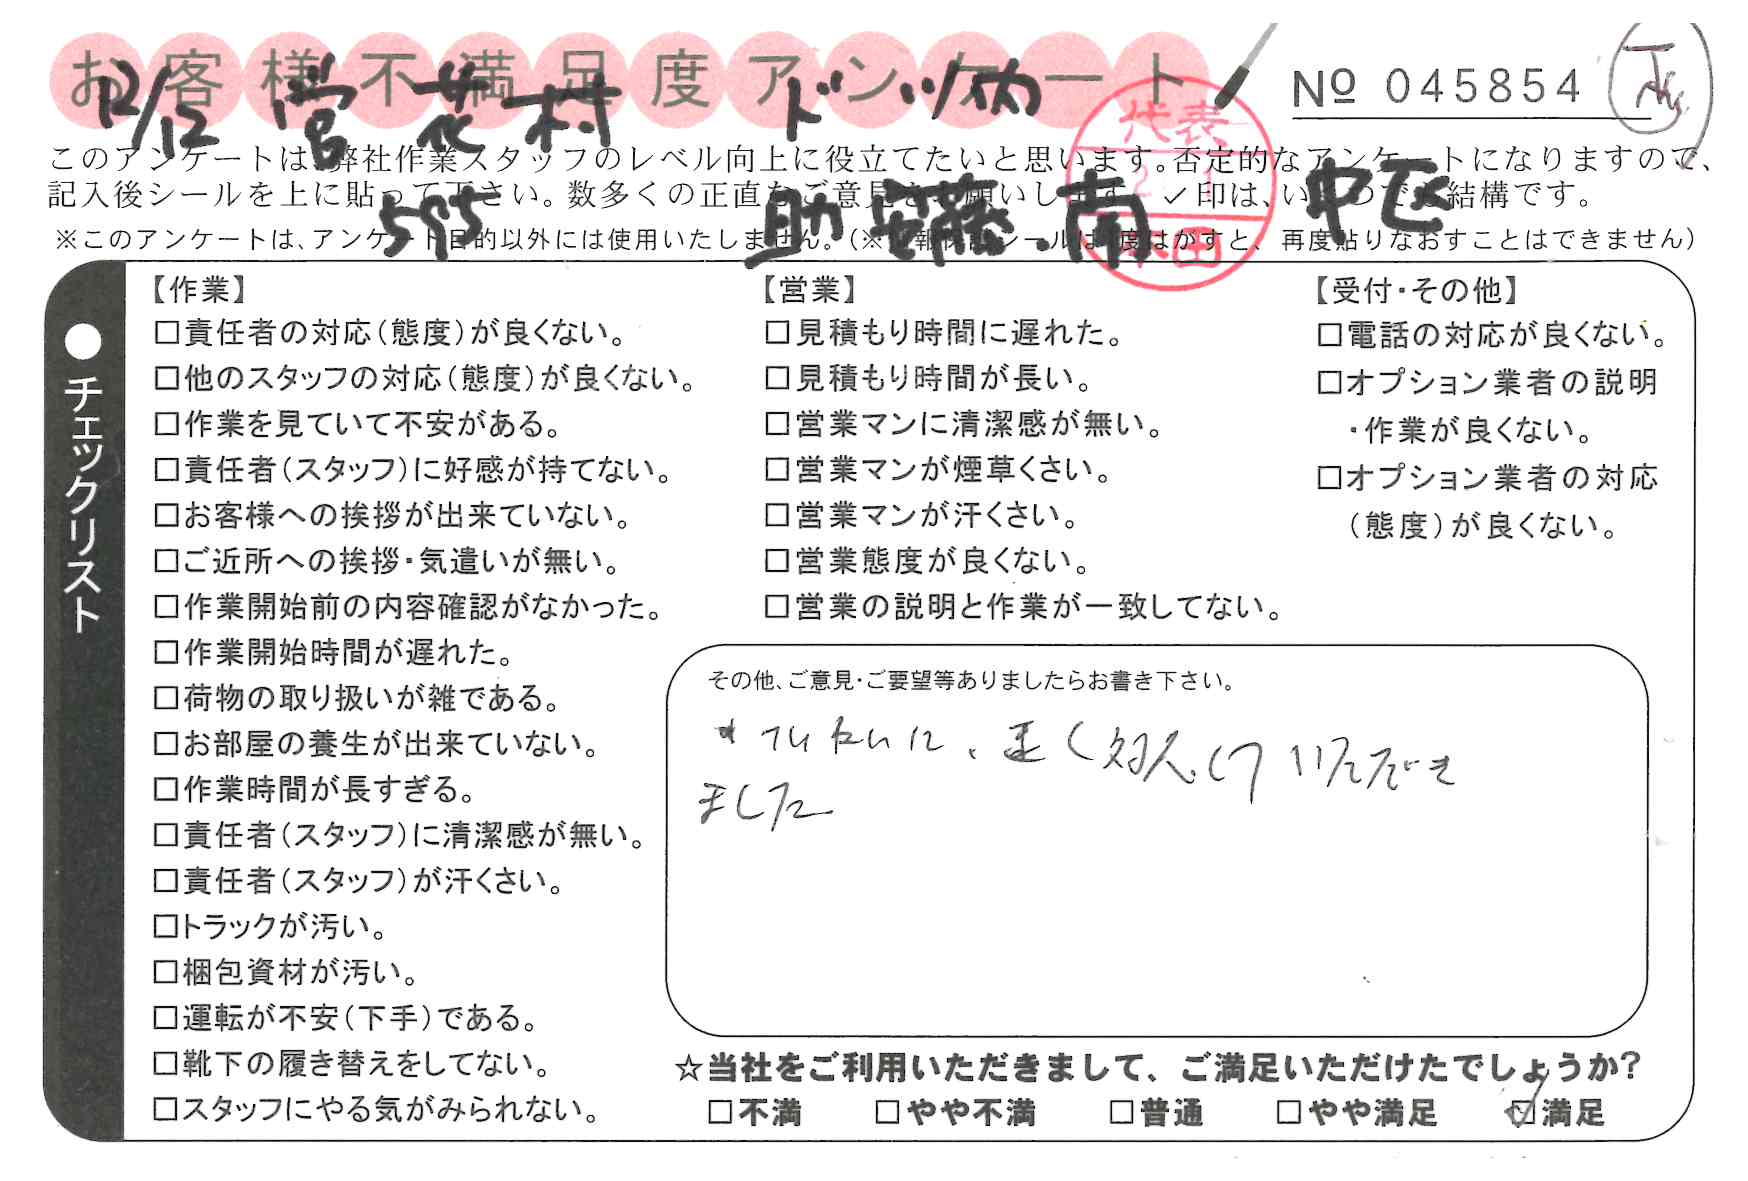 お客様不満足度アンケート
№ 045854
12/12 営 花村 ドツ内
このアンケートは、弊社作業スタッフのレベル向上に役立てたいと思います。否定的なアンケートになりますので、
記入後シールを上に貼って下さい。数多くの正直なご意見をお願いします。✓印は、いくつでも結構です。
595 助 安藤.南 中正
代表
本田
【作業】
□責任者の対応(態度)が良くない。
□他のスタッフの対応(態度)が良くない。
□作業を見ていて不安がある。
□責任者(スタッフ)に好感が持てない。
□お客様への挨拶が出来ていない。
□ご近所への挨拶・気遣いが無い。
□作業開始前の内容確認がなかった。
□作業開始時間が遅れた。
□荷物の取り扱いが雑である。
□お部屋の養生が出来ていない。
□作業時間が長すぎる。
□責任者(スタッフ)に清潔感が無い。
□責任者(スタッフ)が汗くさい。
□トラックが汚い。
□梱包資材が汚い。
□運転が不安(下手)である。
□靴下の履き替えをしてない。
□スタッフにやる気がみられない。
【営業】
□見積もり時間に遅れた。
□見積もり時間が長い。
□営業マンに清潔感が無い。
□営業マンが煙草くさい。
□営業マンが汗くさい。
□営業態度が良くない。
□営業の説明と作業が一致してない。
【受付・その他】
□電話の対応が良くない。
□オプション業者の説明
・作業が良くない。
□オプション業者の対応
(態度)が良くない。
●チェックリスト
その他、ご意見・ご要望等ありましたらお書き下さい。
ていねいに、速く対応していただき
ました
☆当社をご利用いただきまして、ご満足いただけたでしょうか?
□不満 □やや不満 □普通 □やや満足 ☑満足